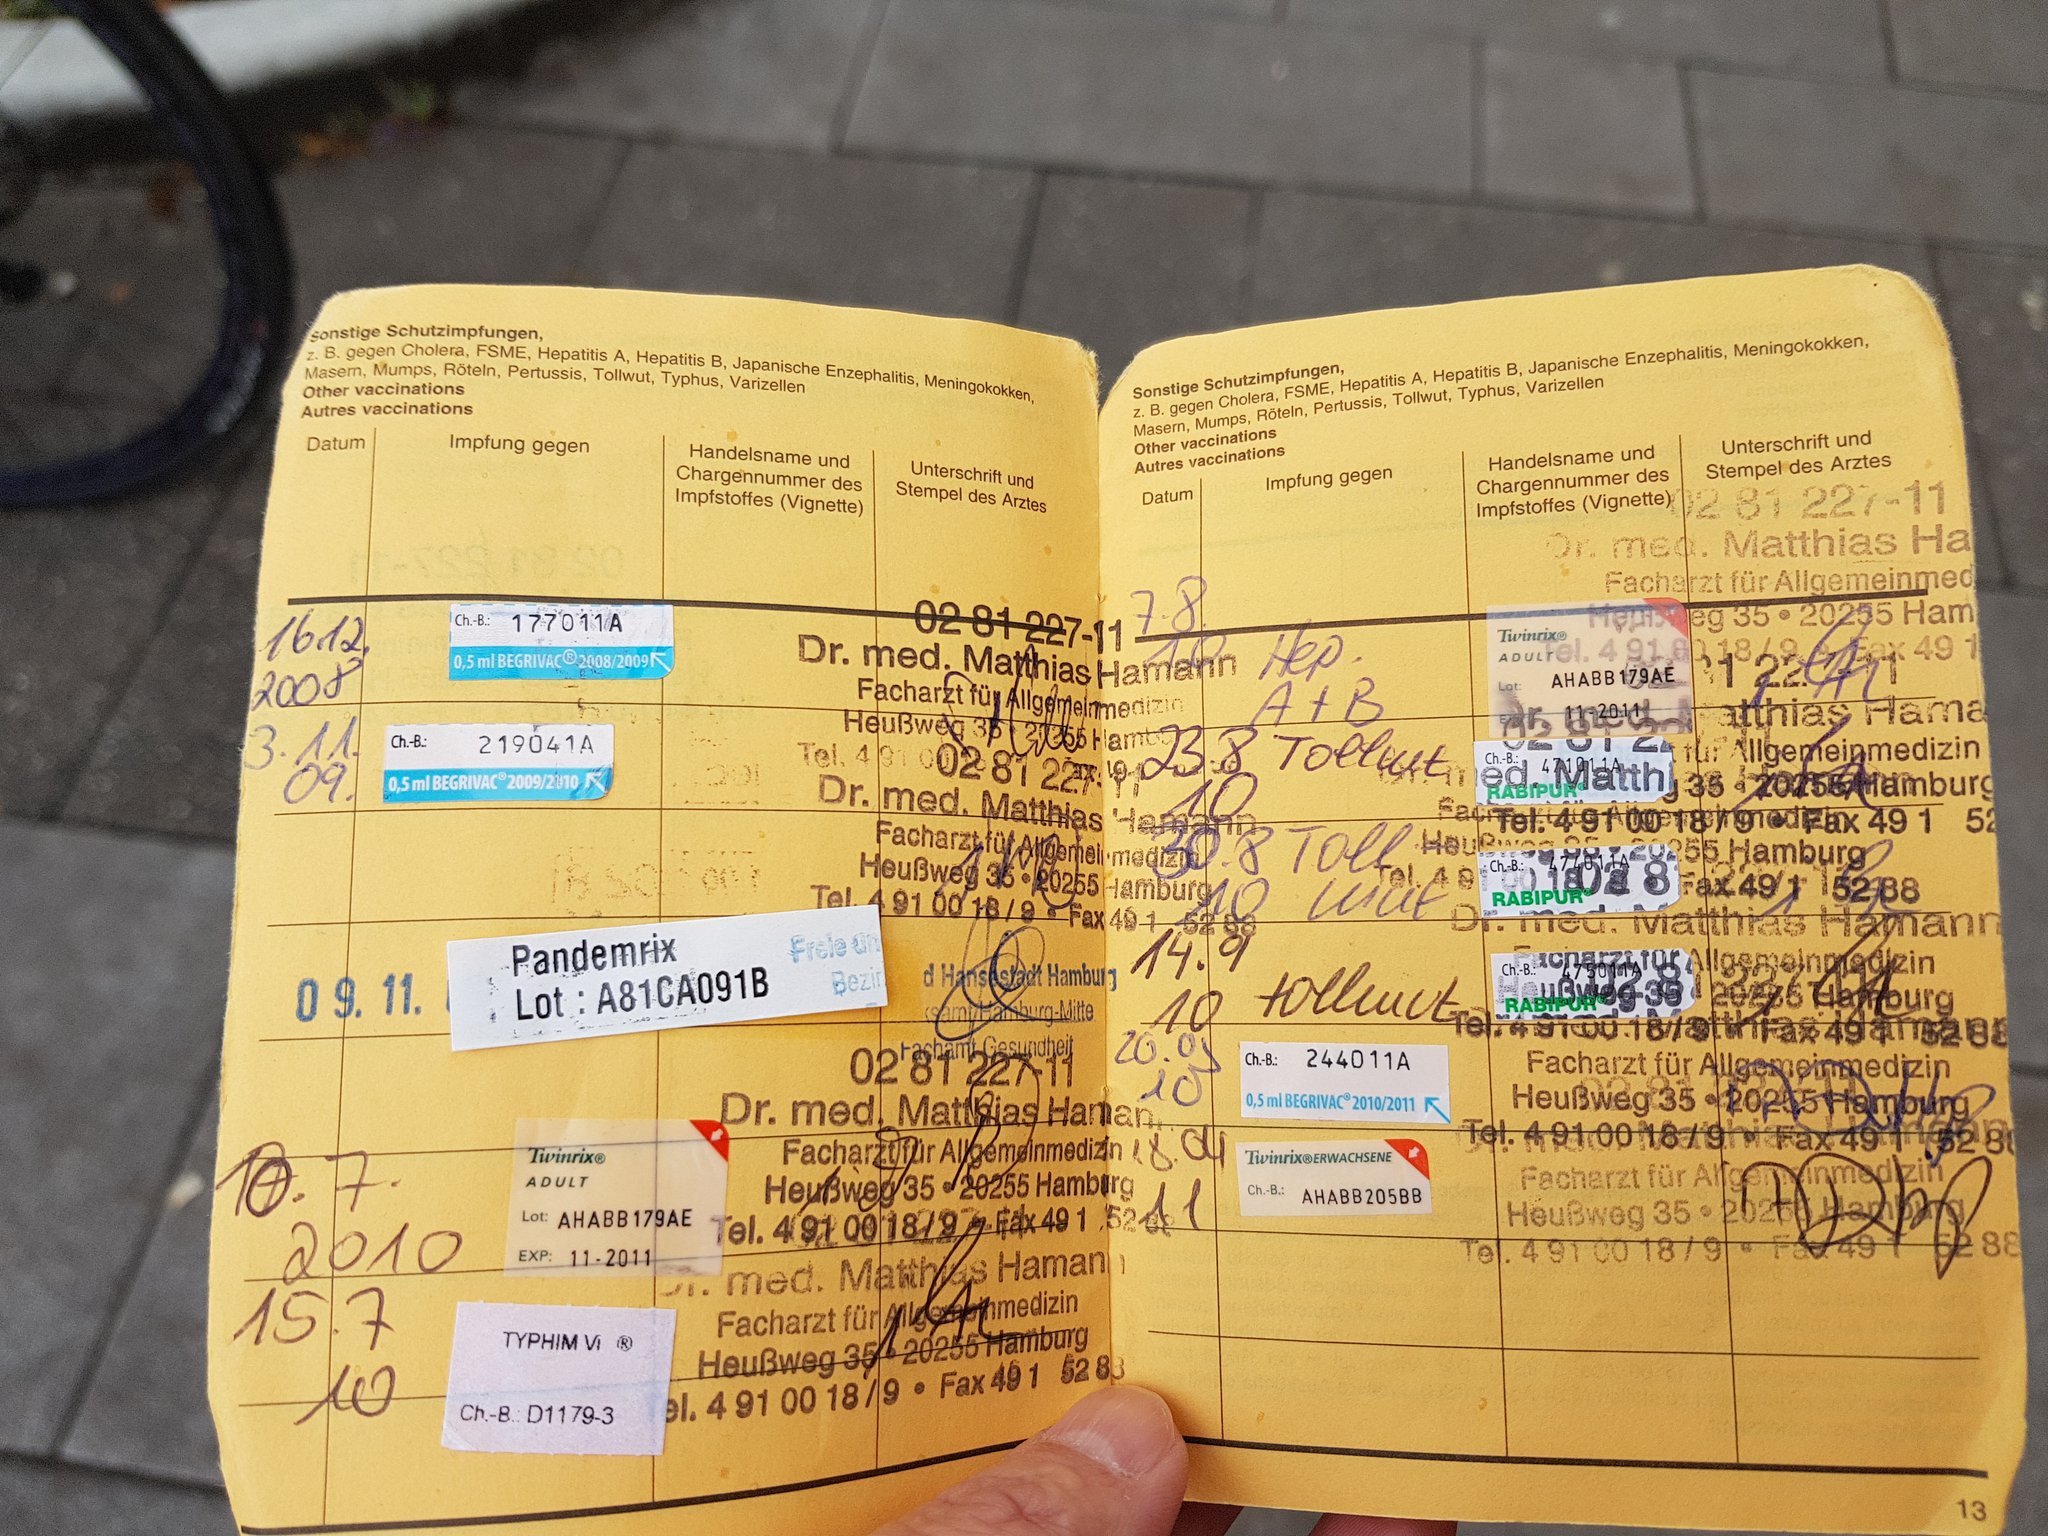 Sonstige Schutzimpfungen,
z. B. gegen Cholera, FSME, Hepatitis A, Hepatitis B, Japanische Enzephalitis, Meningokokken,
Masern, Mumps, Röteln, Pertussis, Tollwut, Typhus, Varizellen
Other vaccinations
Autres vaccinations
Datum
Impfung gegen
Handelsname und
Chargennummer des
Impfstoffes (Vignette)
Unterschrift und
Stempel des Arztes
16.12.
2008
Ch.-B.: 177011A
0,5 ml BEGRIVAC® 2008/2009
02 81 227-11
Dr. med. Matthias Hamann
Facharzt für Allgemeinmedizin
Heußweg 35 • 20255 Hamburg
Tel. 4 91
3.11.
09.
Ch.-B.: 219041A
0,5 ml BEGRIVAC® 2009/2010
02 81 227-11
Dr. med. Matthias Hamann
Facharzt für Allgemeinmedizin
Heußweg 35 • 20255 Hamburg
Tel. 4 91 00 18 / 9 • Fax 49 1 52 88
09. 11.
Pandemrix
Lot : A81CA091B
Freie und Hansestadt Hamburg
Bezirksamt Hamburg-Mitte
Fachamt Gesundheit
02 81 227-11
Dr. med. Matthias Hamann
Facharzt für Allgemeinmedizin
Heußweg 35 • 20255 Hamburg
Tel. 4 91 00 18 / 9 • Fax 49 1 52 88
10. 7.
2010
Twinrix®
ADULT
Lot: AHABB179AE
EXP: 11-2011
Dr. med. Matthias Hamann
Facharzt für Allgemeinmedizin
Heußweg 35 • 20255 Hamburg
Tel. 4 91 00 18 / 9 • Fax 49 1 52 88
15.7
10
TYPHIM Vi ®
Ch.-B.: D1179-3
Sonstige Schutzimpfungen,
z. B. gegen Cholera, FSME, Hepatitis A, Hepatitis B, Japanische Enzephalitis, Meningokokken,
Masern, Mumps, Röteln, Pertussis, Tollwut, Typhus, Varizellen
Other vaccinations
Autres vaccinations
Datum
Impfung gegen
Handelsname und
Chargennummer des
Impfstoffes (Vignette)
Unterschrift und
Stempel des Arztes
02 81 227-11
Dr. med. Matthias Ha
Facharzt für Allgemeinmed
Heußweg 35 • 20255 Ham
7.8.
10
Hep.
A + B
Twinrix®
ADULT
Lot: AHABB179AE
11-2011
23.8
10
Tollwut
Ch.-B.: 471011A
RABIPUR®
für Allgemeinmedizin
35 • 20255 Hamburg
Tel. 4 91 00 18 / 9 • Fax 49 1 52
30.8
10
Tollwut
Ch.-B.: 474011A
RABIPUR®
Hamburg
Fax 49 1 52 88
Dr. med. Matthias Hamann
14.9
10
tollwut
Ch.-B.: 475011A
RABIPUR®
Facharzt für Allgemeinmedizin
Heußweg 35 • 20255 Hamburg
Tel. 4 91 00 18 / 9 • Fax 49 1 52 88
10
Ch.-B.: 244011A
0,5 ml BEGRIVAC® 2010/2011
Facharzt für Allgemeinmedizin
Heußweg 35 • 20255 Hamburg
Tel. 4 91 00 18 / 9 • Fax 49 1 52 88
18.04
11
Twinrix® ERWACHSENE
Ch.-B.: AHABB205BB
Facharzt für Allgemeinmedizin
Heußweg 35 • 20255 Hamburg
Tel. 4 91 00 18 / 9 • Fax 49 1 52 88
13